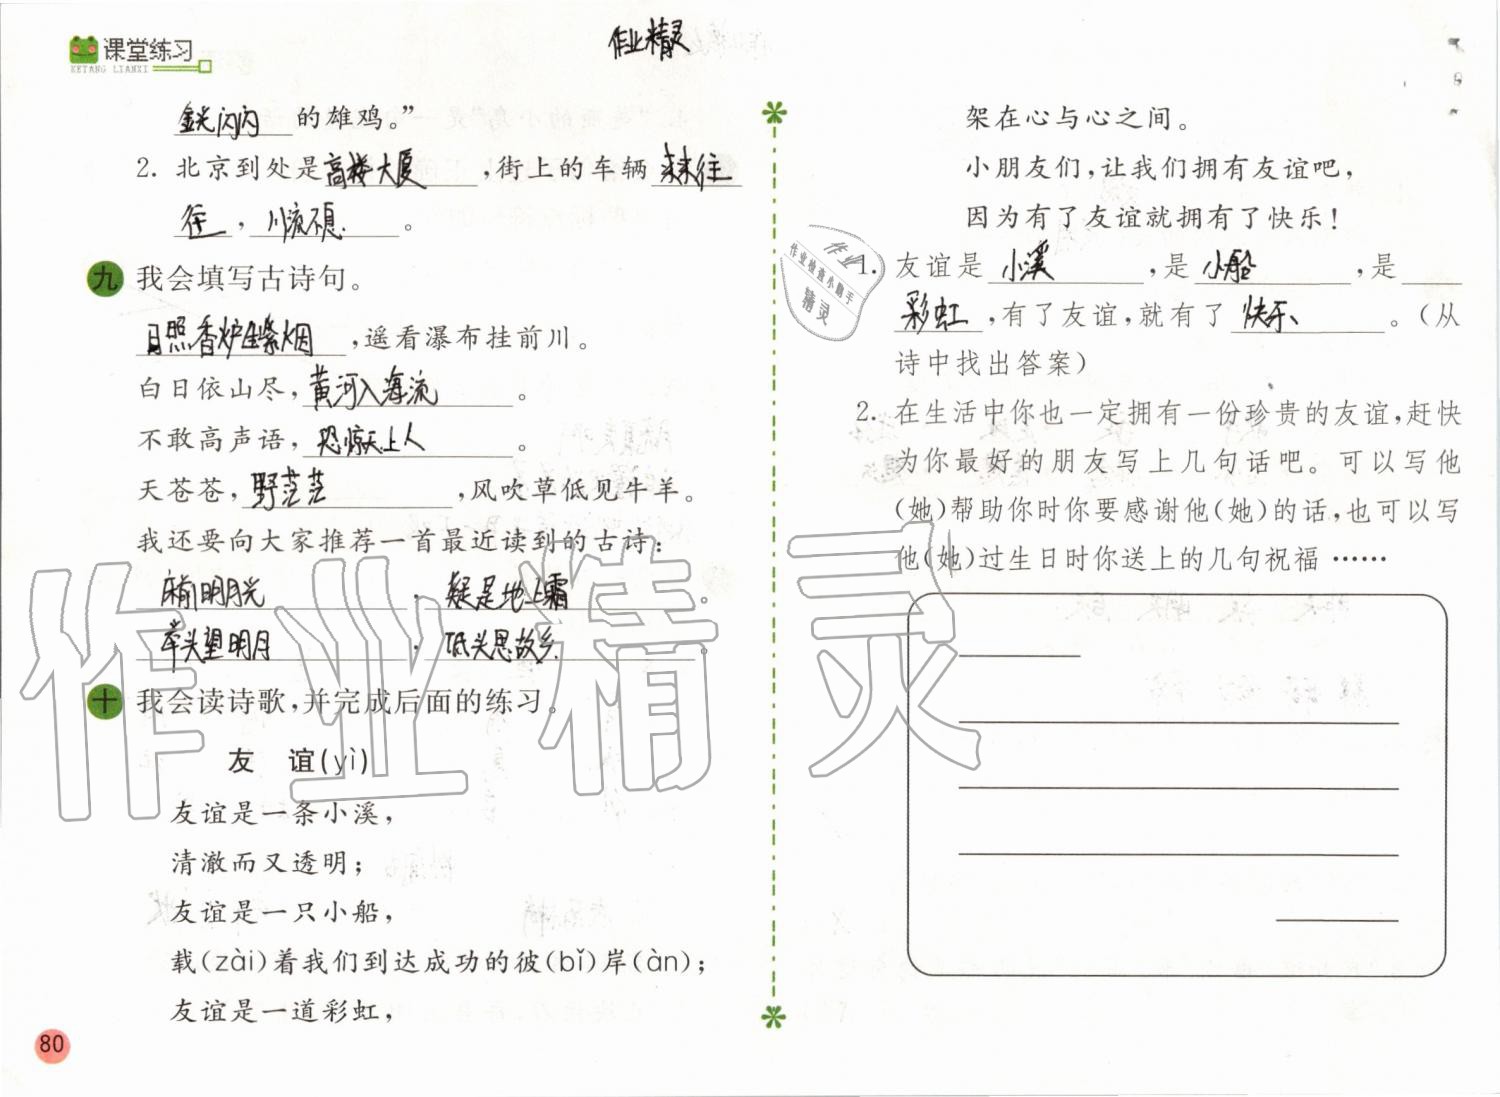 课堂练习
KETANG LIANXI
作业精灵
金光闪闪的雄鸡。”
2. 北京到处是高楼大厦,街上的车辆来来往
往,川流不息。
九 我会填写古诗句。
日照香炉生紫烟,遥看瀑布挂前川。
白日依山尽,黄河入海流。
不敢高声语,恐惊天上人。
天苍苍,野茫茫,风吹草低见牛羊。
我还要向大家推荐一首最近读到的古诗:
床前明月光,疑是地上霜。
举头望明月,低头思故乡。
十 我会读诗歌,并完成后面的练习。
友 谊(yì)
友谊是一条小溪,
清澈而又透明;
友谊是一只小船,
载(zài)着我们到达成功的彼(bǐ)岸(àn);
友谊是一道彩虹,
80
架在心与心之间。
小朋友们,让我们拥有友谊吧,
因为有了友谊就拥有了快乐!
1. 友谊是小溪,是小船,是
彩虹,有了友谊,就有了快乐。(从
诗中找出答案)
2. 在生活中你也一定拥有一份珍贵的友谊,赶快
为你最好的朋友写上几句话吧。可以写他
(她)帮助你时你要感谢他(她)的话,也可以写
他(她)过生日时你送上的几句祝福……
作业
作业检查小助手
精灵
作业精灵